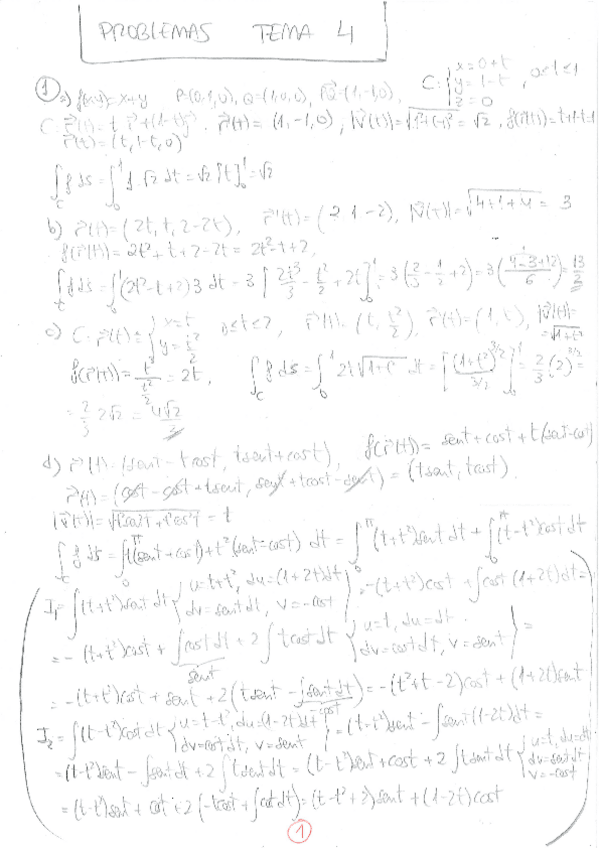 PROBLEMAS TEMA 4
① a) f(x,y)=x+y P=(0,1,0), Q=(1,0,0), PQ=(1,-1,0), C: { x=0+t, y=1-t, z=0 , 0≤t≤1
C: r(t)=t i+(1-t)j. r'(t)=(1,-1,0), |v(t)|=√(1²+(-1)²)=√2, f(r(t))=t+1-t=1
r(t)=(t,1-t,0)
∫_C f ds = ∫_0^1 1·√2 dt = √2 [t]_0^1 = √2
b) r(t)=(2t,t,2-2t), r'(t)=(2,1,-2), |v(t)|=√(4+1+4) = 3
f(r(t))=2t²+t+2-2t=2t²-t+2
∫_C f ds = ∫_0^1 (2t²-t+2)3 dt = 3[2t³/3 - t²/2 + 2t]_0^1 = 3(2/3 - 1/2 + 2) = 3((4-3+12)/6) = 13/2
c) C: r(t)= { x=t, y=t²/2 0≤t≤2, r(t)=(t, t²/2), r'(t)=(1,t), |v(t)|=
=√(1+t²)
f(r(t))= = 2t, ∫_C f ds = ∫_0^1 2t√(1+t²) dt = [(1+t²)^{3/2}/(3/2)]_0^1 = 2/3 (2)^{3/2} =
= 2/3 2√2 = 4√2/3
d) r(t)=(sent-tcost, tsent+cost), f(r(t))= sent+cost+t(sent-cost)
r'(t)=(cost-cost+tsent, sent+tcost-sent)=(tsent, tcost).
|v(t)|=√(t²sen²t+t²cos²t) = t
∫_C f ds = ∫_0^π t(sent+cost)+t²(sent-cost) dt = ∫_0^π (t+t²)sent dt + ∫_0^π (t-t²)cost dt
I₁=∫(t+t²)sent dt { u=t+t², du=(1+2t)dt, dv=sent dt, v=-cost } = -(t+t²)cost + ∫cost(1+2t)dt=
= -(t+t²)cost + ∫cost dt + 2∫tcost dt { u=t, du=dt, dv=cost dt, v=sent } =
sent
= -(t+t²)cost + sent + 2(tsent - ∫sent dt) = -(t²+t-2)cost + (1+2t)sent
-cost
I₂=∫(t-t²)cost dt { u=t-t², du=(1-2t)dt, dv=cost dt, v=sent } = (t-t²)sent - ∫sent(1-2t)dt =
=(t-t²)sent - ∫sent dt + 2∫tsent dt = (t-t²)sent + cost + 2∫tsent dt { u=t, du=dt, dv=sent dt, v=-cost
=(t-t²)sent + cost + 2(-tcost+∫cost dt) = (t-t²+2)sent + (1-2t)cost
①